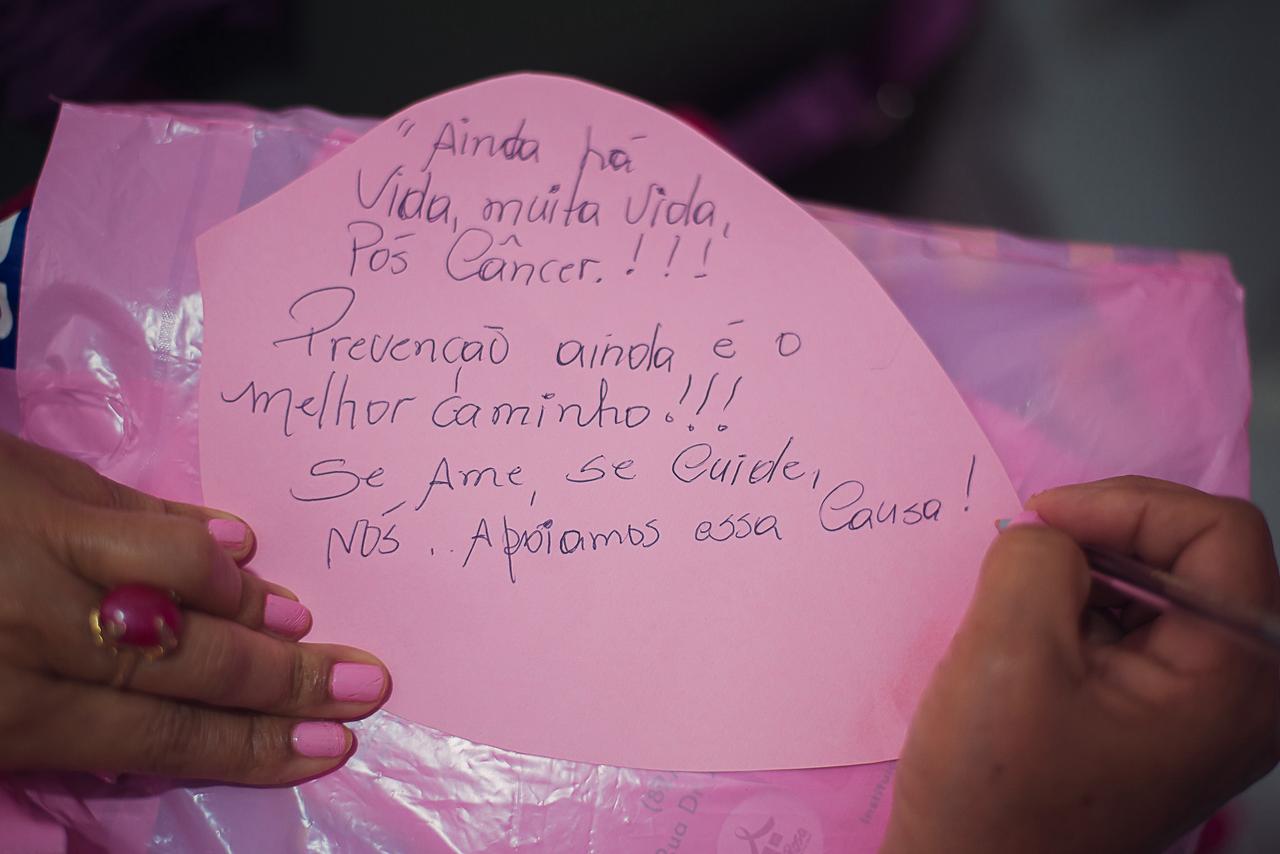 "Ainda há
Vida, muita Vida,
Pós Câncer.!!!
Prevenção ainda é o
melhor caminho!!!
Se Ame, se Cuide,
Nós.. Apoiamos essa Causa!
(8
Rua Dr
Institu
Rosa